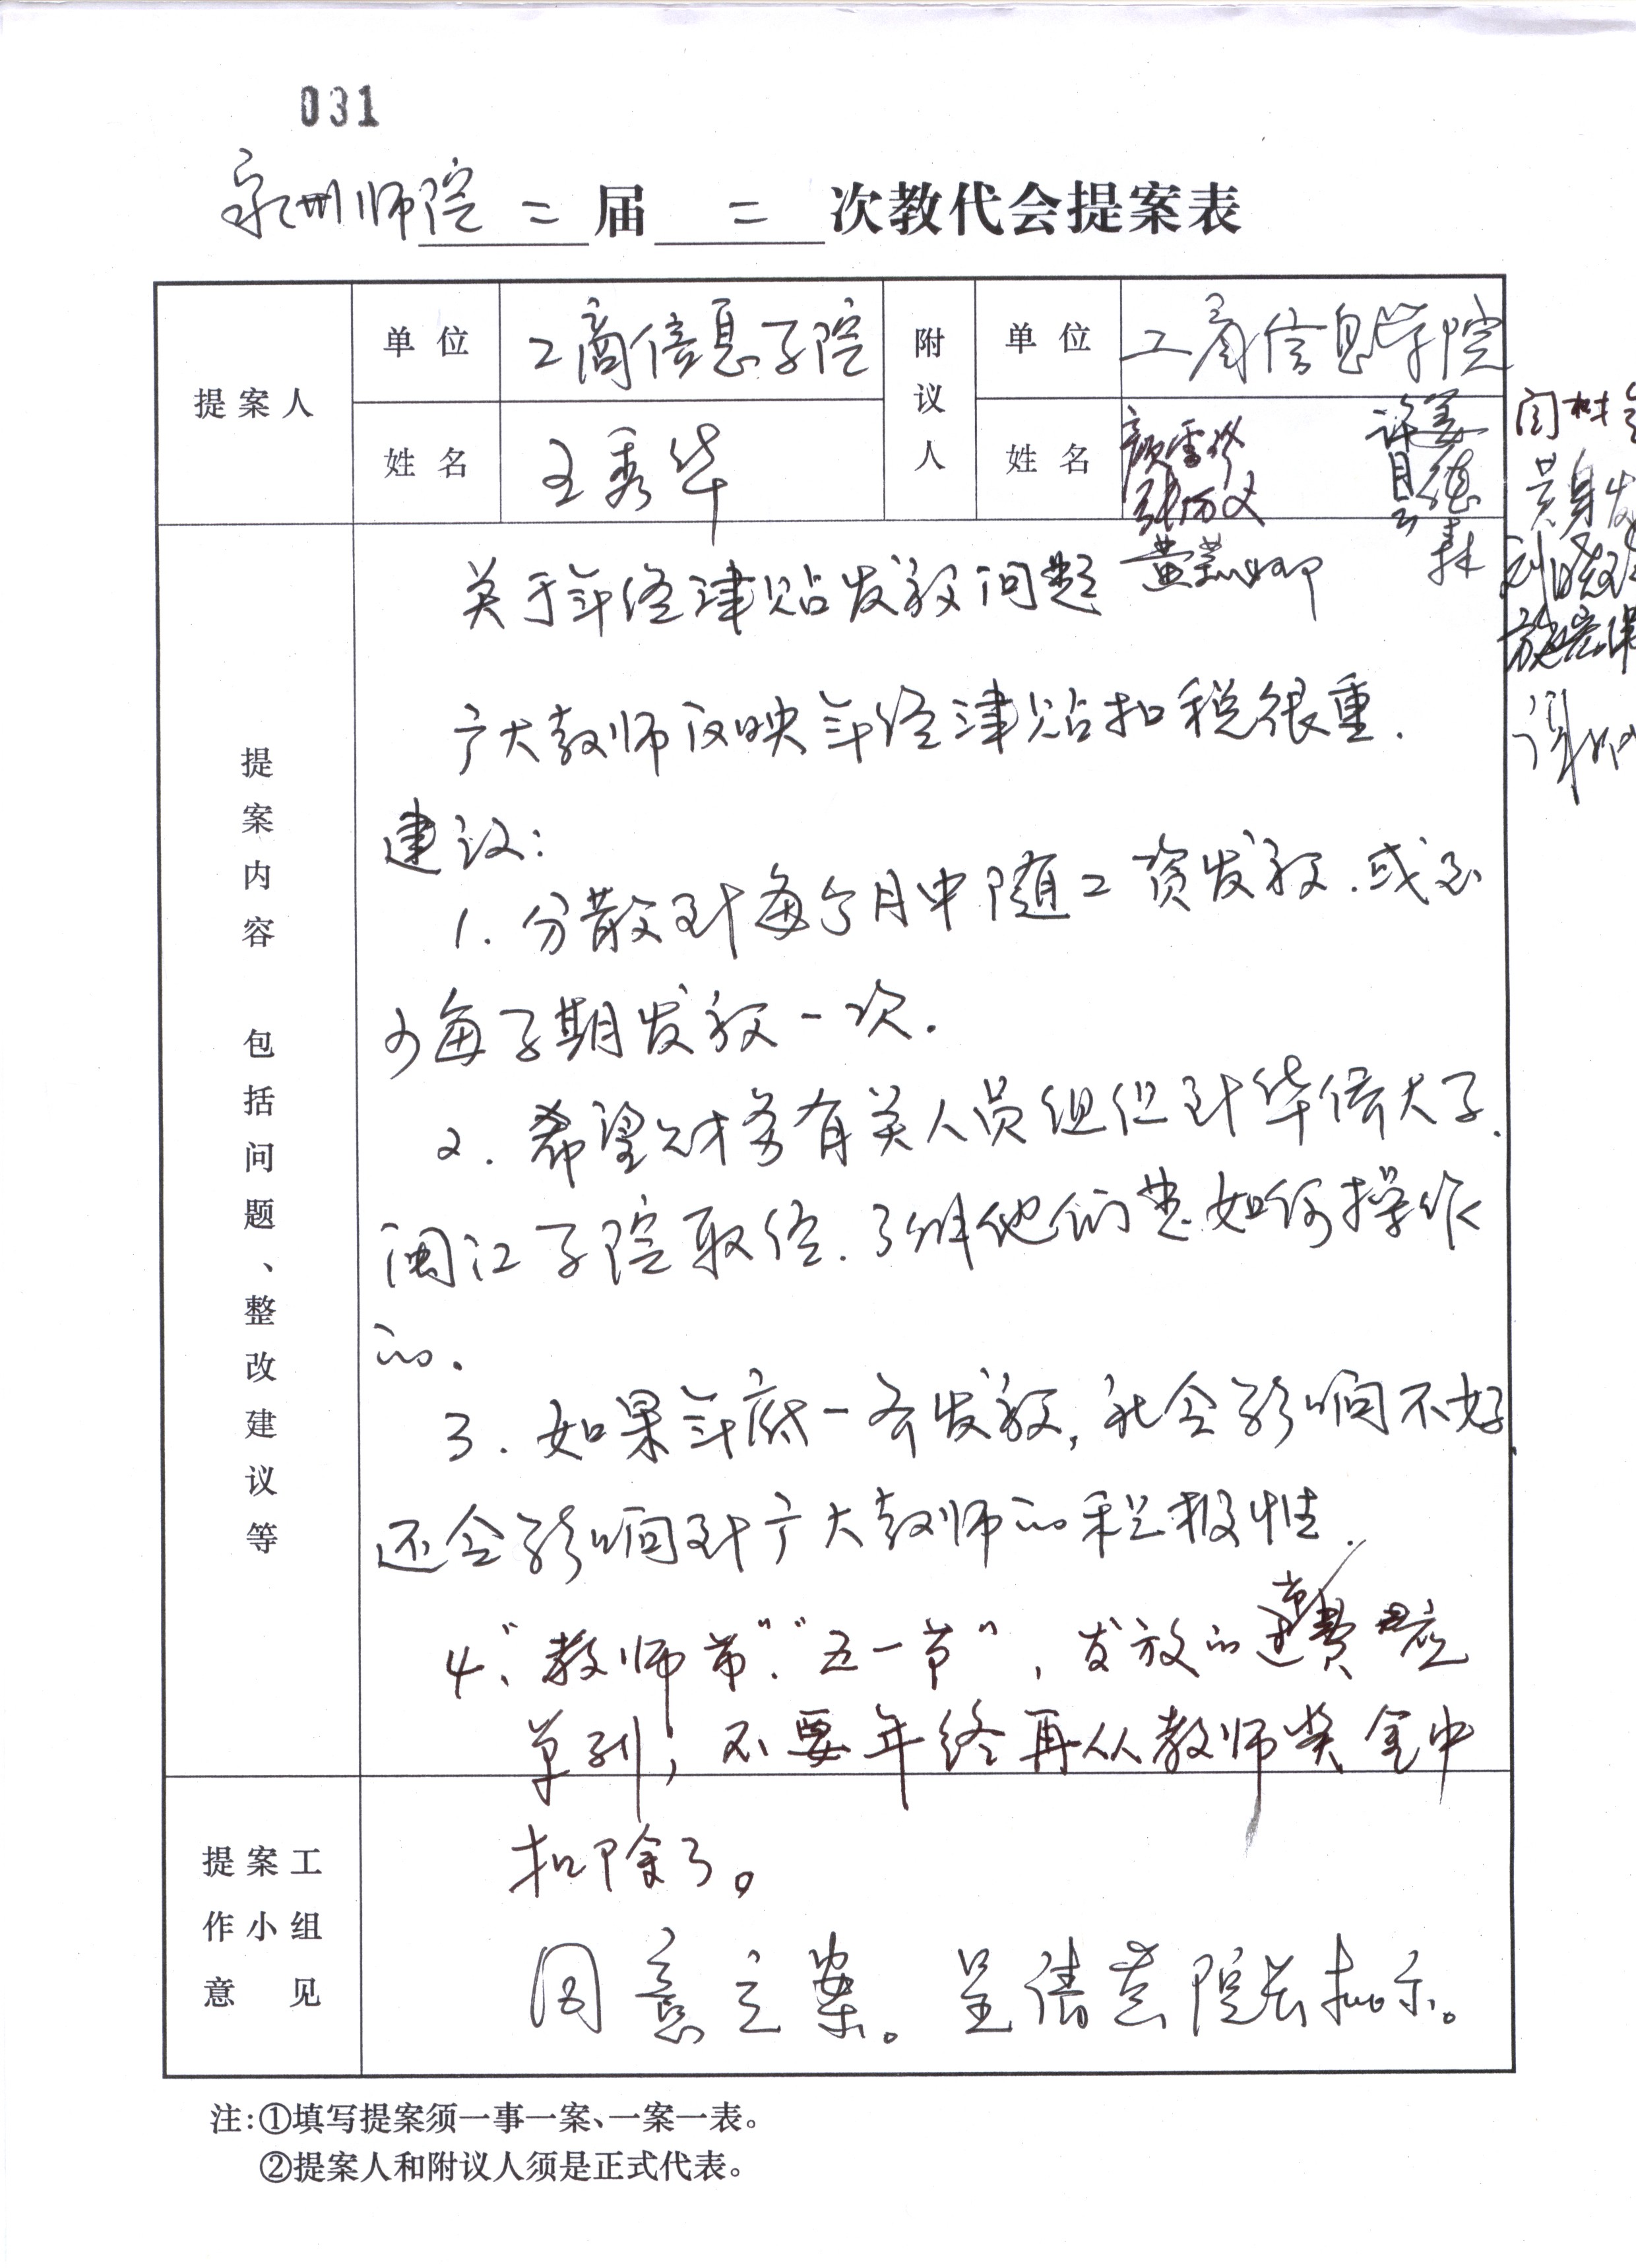 031
泉州师院 二 届 二 次教代会提案表
提案人
单位
工商信息学院
附议人
单位
工商信息学院
姓名
王秀华
姓名
黄燕卿
许月云
姜德森
关于年终津贴发放问题
提案内容 包括问题、整改建议等
广大教师反映年终津贴扣税很重.
建议:
1. 分散到每个月中随工资发放.或至
少每学期发放一次.
2. 希望财务有关人员组织到华侨大学.
闽江学院取经.了解他们是如何操作
的.
3. 如果年底一齐发放,社会影响不好.
还会影响到广大教师的积极性.
4、"教师节"."五一节",发放的过节费应
单列;不要年终再从教师奖金中
扣除了。
提案工作小组意见
同意立案。呈请黄院长批示。
注:①填写提案须一事一案、一案一表。
②提案人和附议人须是正式代表。